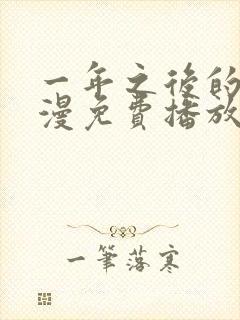 一年之後的
漫免費播放
一筆落寒